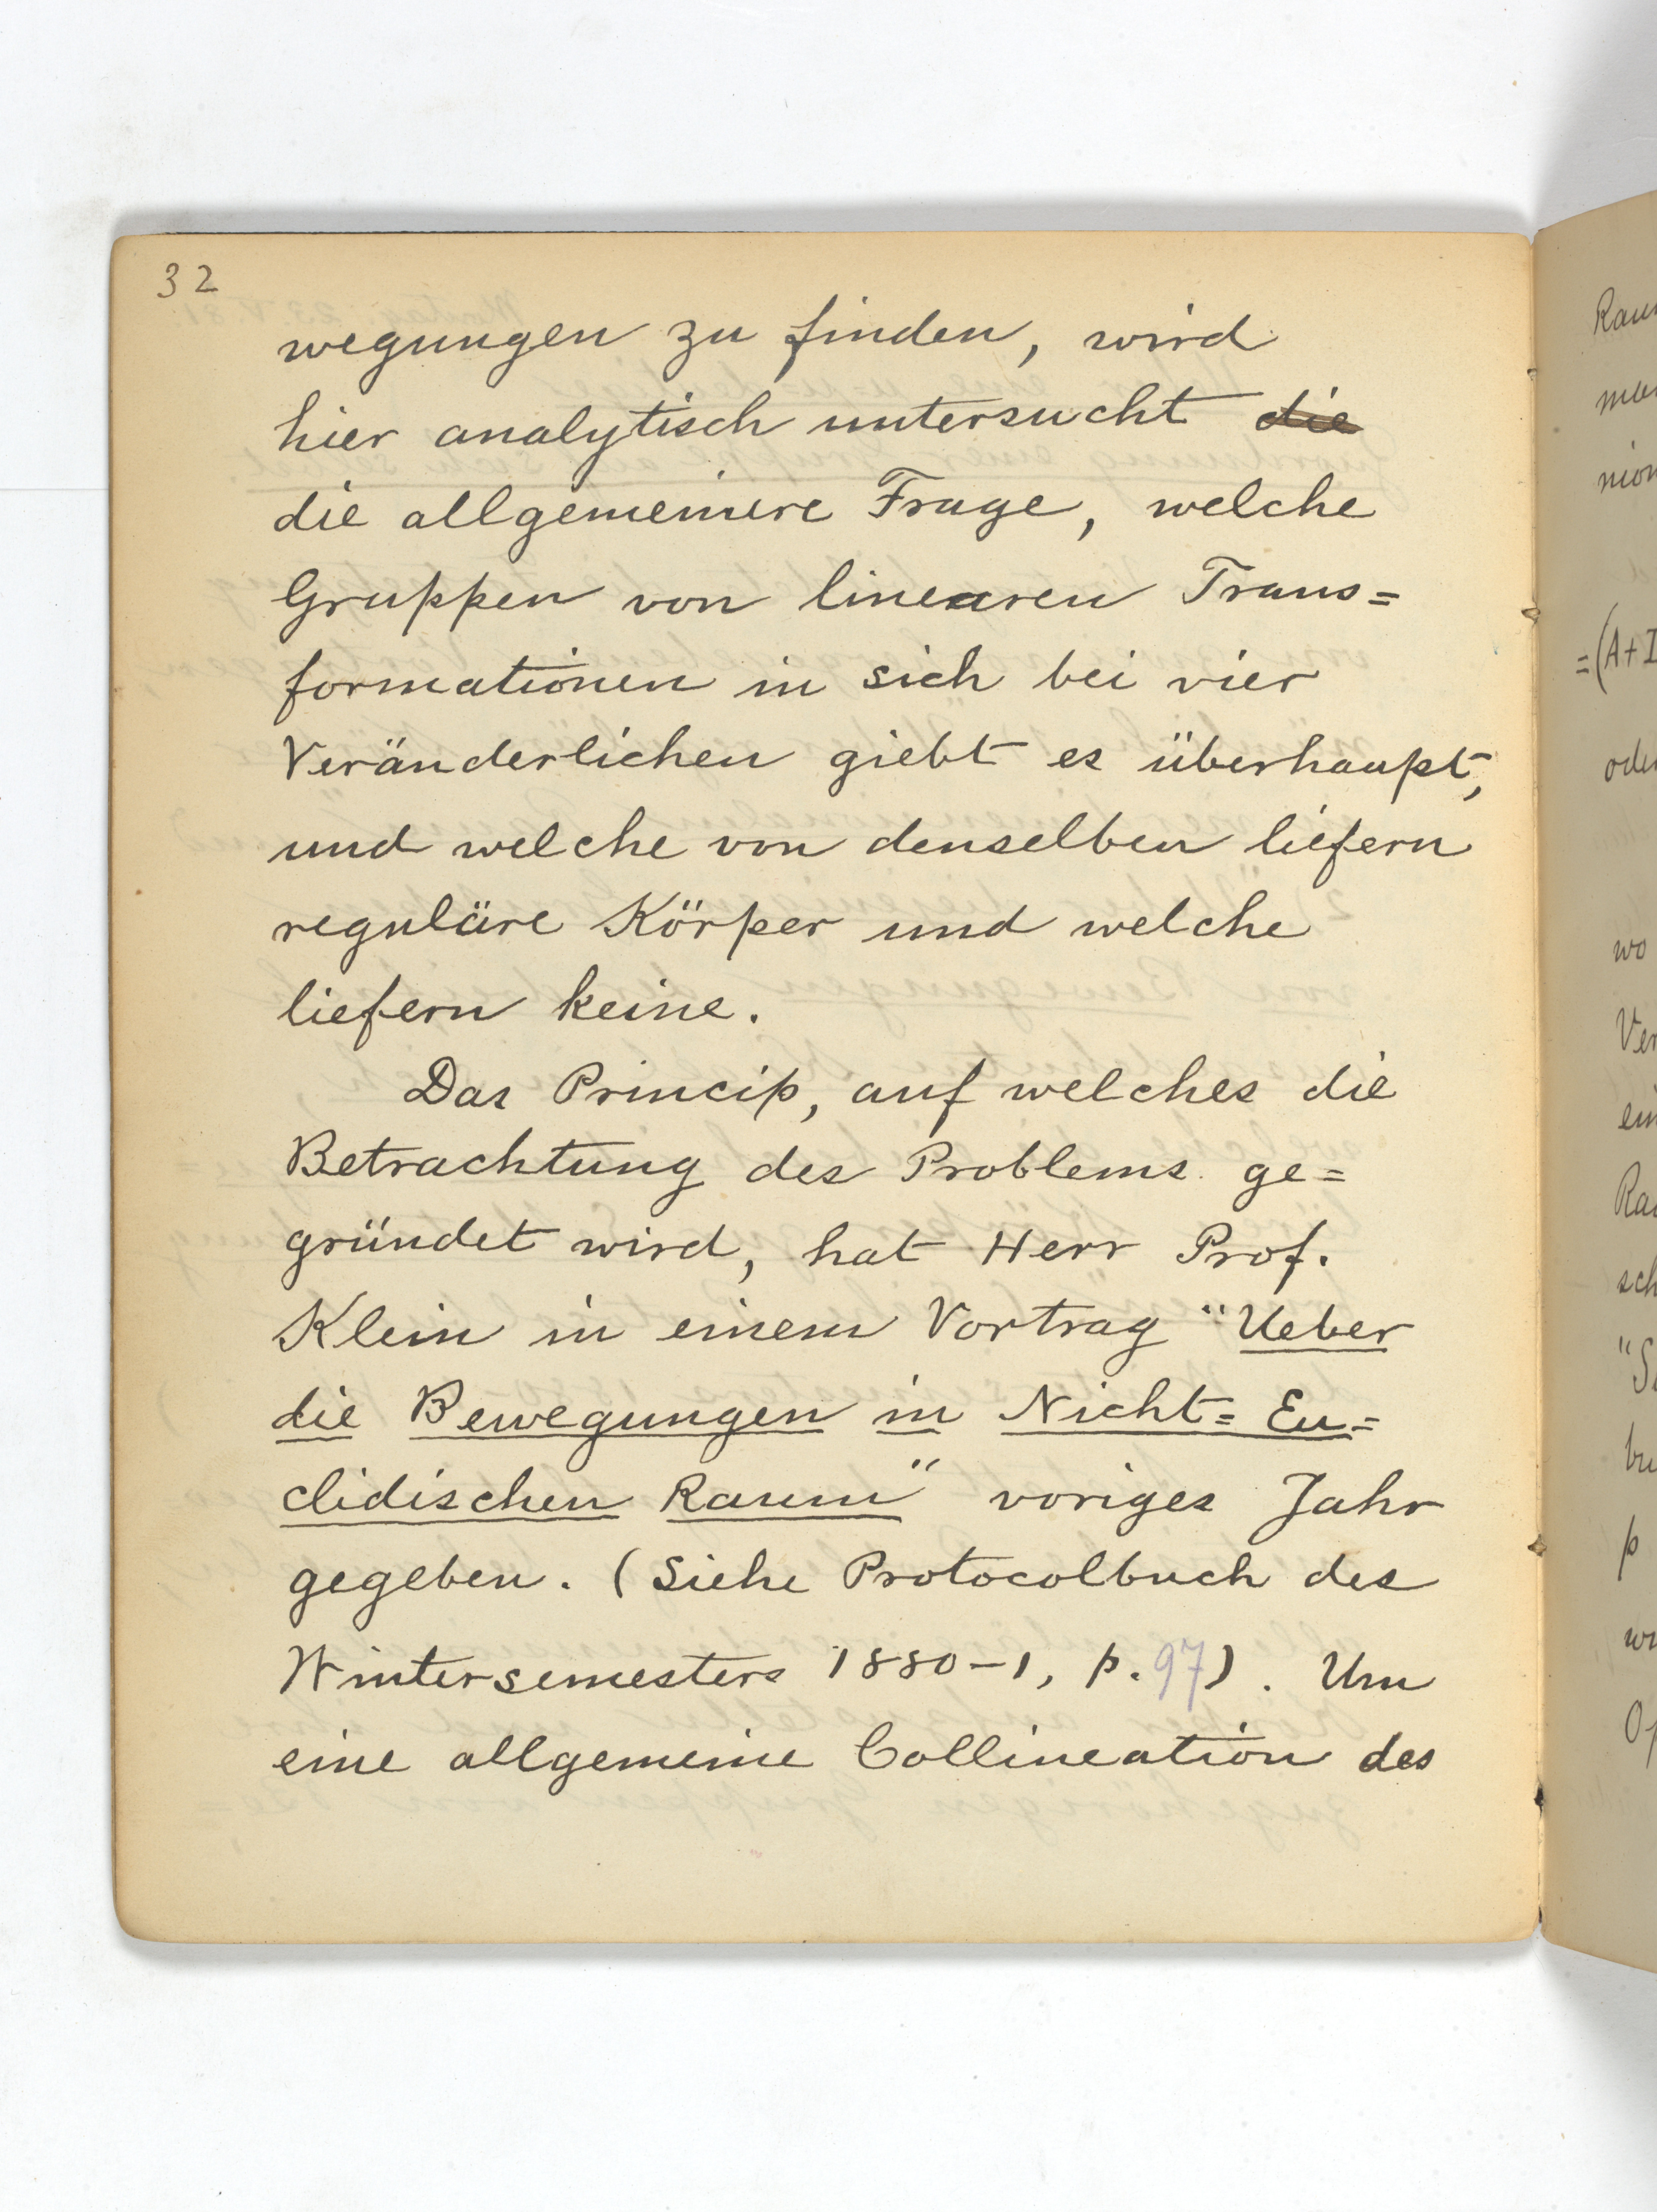 32
wegungen zu finden, wird
hier analytisch untersucht die
die allgemeinere Frage, welche
Gruppen von linearen Trans=
formationen in sich bei vier
Veränderlichen giebt es überhaupt,
und welche von denselben liefern
reguläre Körper und welche
liefern keine.
Das Princip, auf welches die
Betrachtung des Problems ge=
gründet wird, hat Herr Prof.
Klein in einem Vortrag "Ueber
die Bewegungen in Nicht=Eu=
clidischen Raum" voriges Jahr
gegeben. (Siehe Protocolbuch des
Wintersemesters 1880-1, p. 97). Um
eine allgemeine Collineation des
=(A+
wo
"S
p